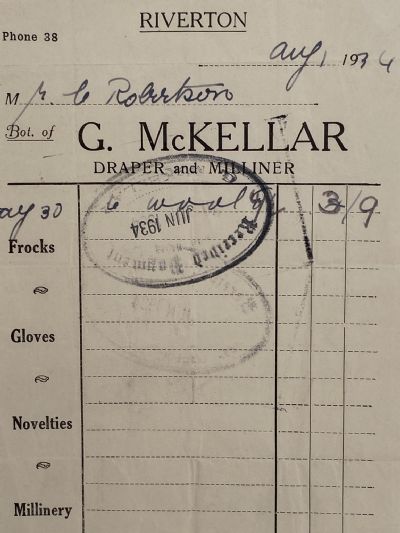 RIVERTON
Phone 38
Aug 1 1934
Mr. C Robertson
Bot. of G. McKELLAR
DRAPER and MILLINER
ay 30 to wool 3/9
Received Payment
JUN 1934
Frocks
Gloves
Novelties
Millinery